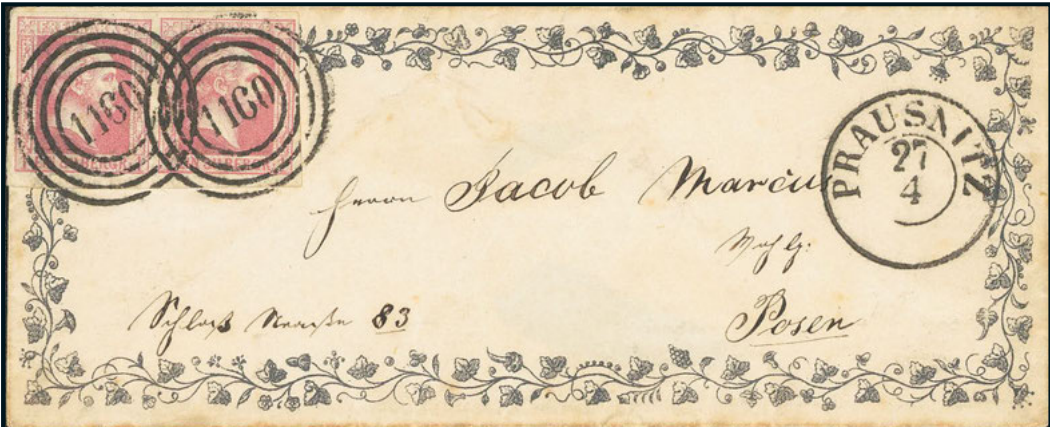 1160 1160
PRAUSNITZ
27
4
Herrn Jacob Marcus
Wohlg:
Posen
Schloss Strasse 83